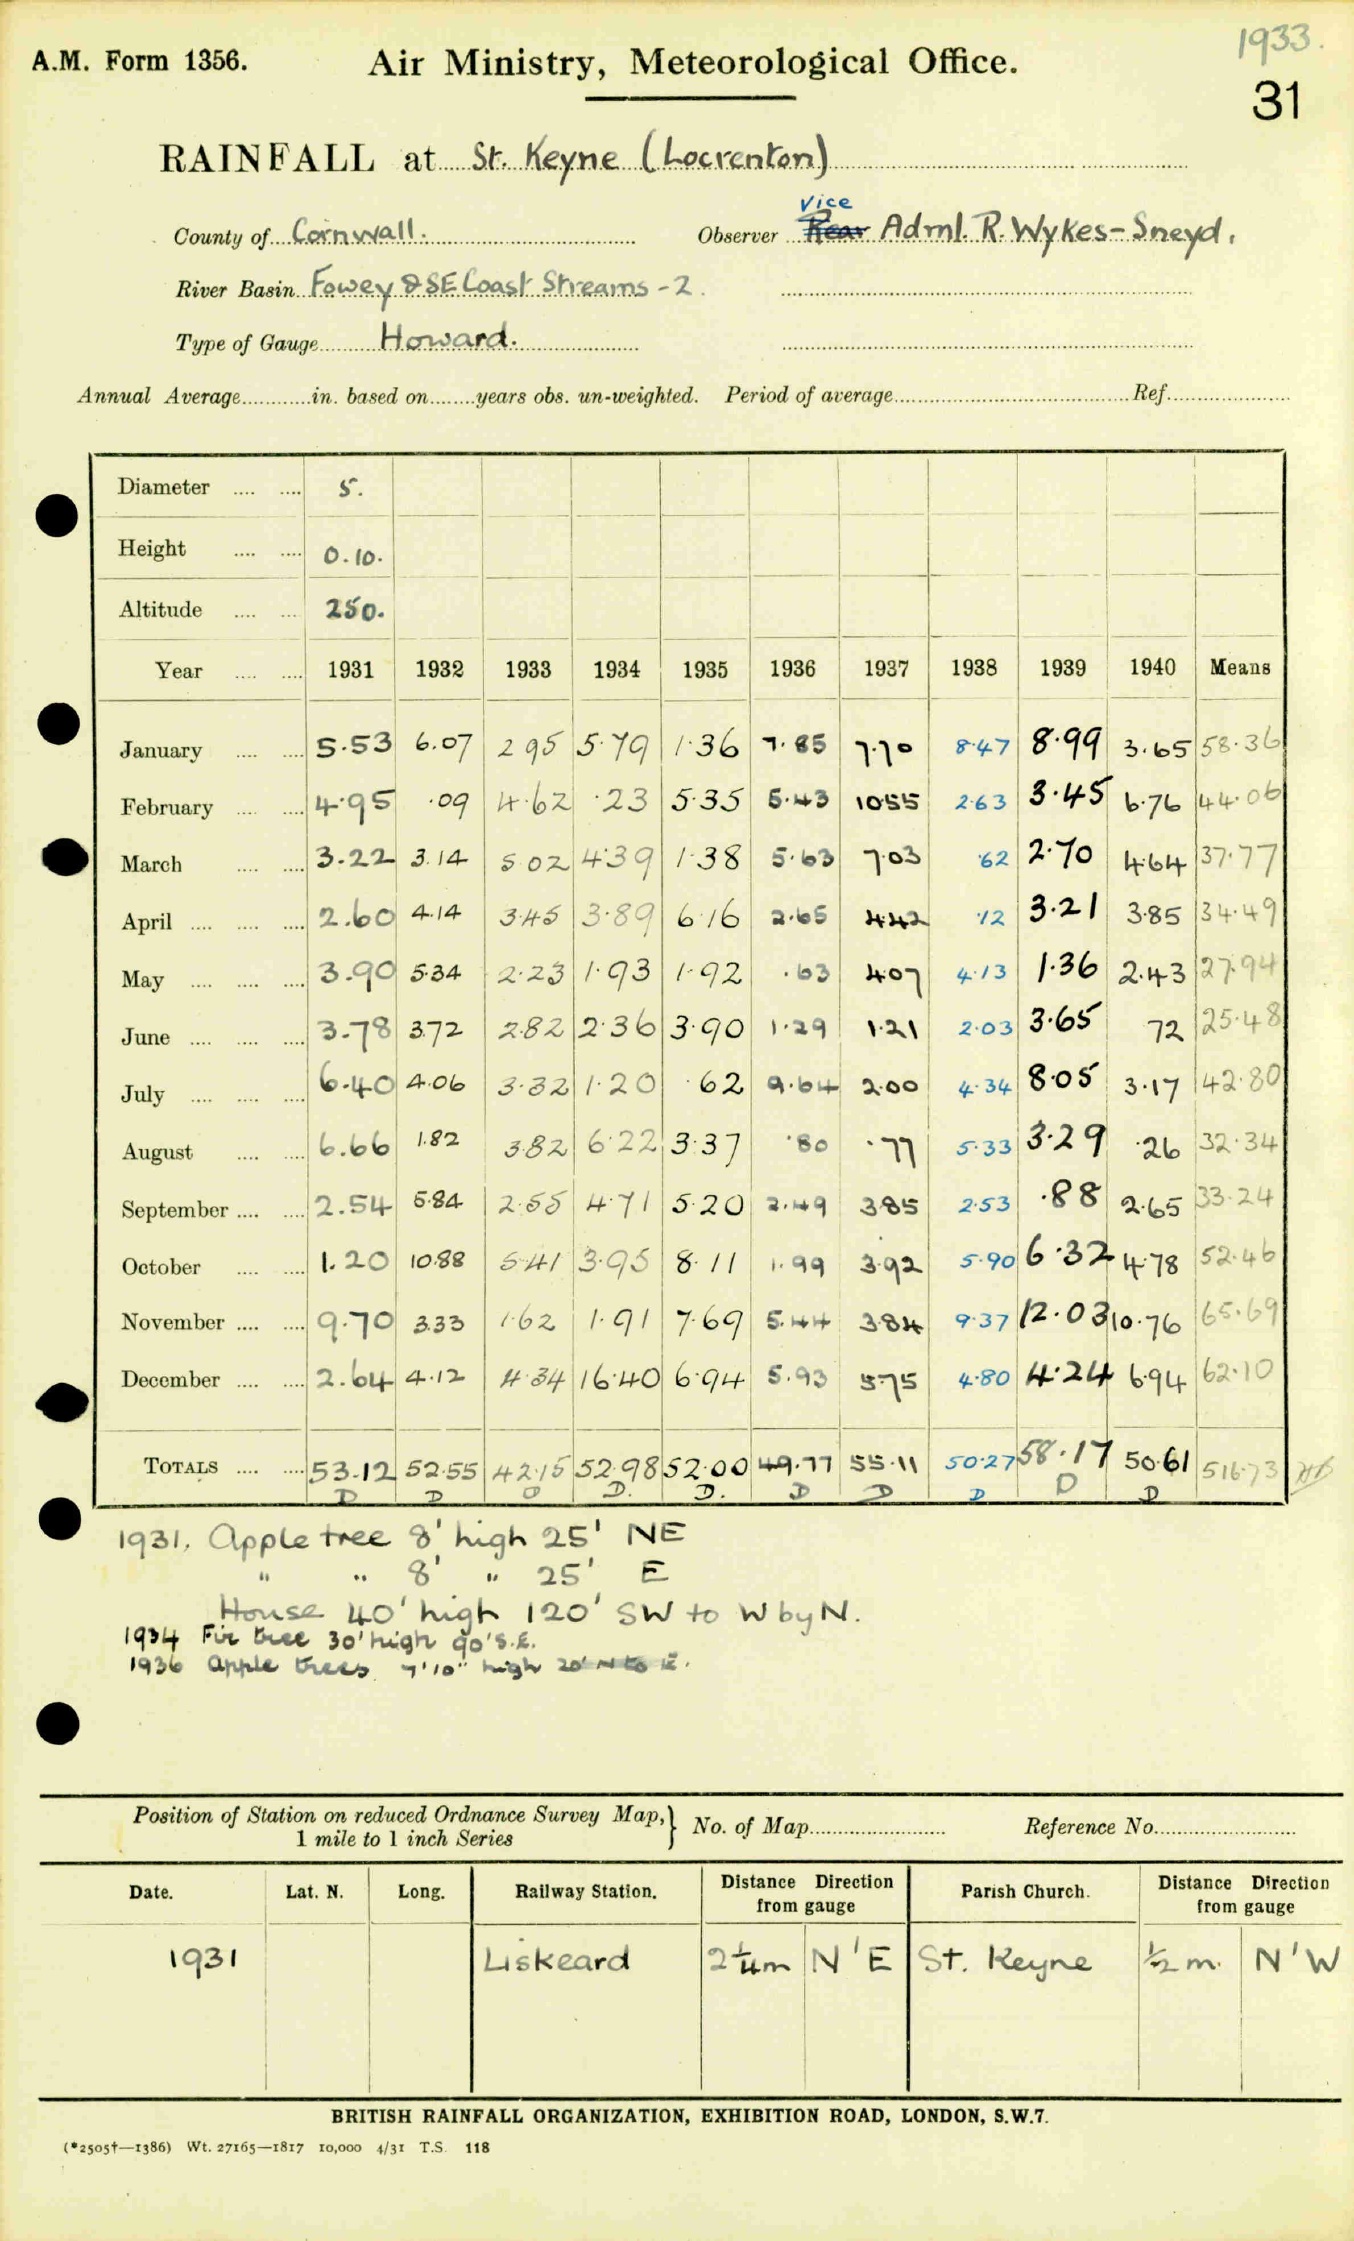 1933.
A.M. Form 1356. Air Ministry, Meteorological Office.
31
RAINFALL at St. Keyne (Locrenton)
Vice
County of Cornwall. Observer Rear Adml. R. Wykes-Sneyd.
River Basin Fowey & SE Coast Streams - 2.
Type of Gauge Howard.
Annual Average in. based on years obs. un-weighted. Period of average Ref.
Diameter 5.
Height 0.10.
Altitude 250.
Year 1931 1932 1933 1934 1935 1936 1937 1938 1939 1940 Means
January 5.53 6.07 2 95 5.79 1.36 7.85 7.70 8.47 8.99 3.65 58.36
February 4.95 .09 4.62 .23 5.35 5.43 10.55 2.63 3.45 6.76 44.06
March 3.22 3.14 5 02 4.39 1.38 5.63 7.03 .62 2.70 4.64 37.77
April 2.60 4.14 3.45 3.89 6.16 2.65 4.42 .12 3.21 3.85 34.49
May 3.90 5.34 2.23 1.93 1.92 .63 4.07 4.13 1.36 2.43 27.94
June 3.78 3.72 2.82 2.36 3.90 1.29 1.21 2.03 3.65 72 25.48
July 6.40 4.06 3.32 1.20 .62 9.64 2.00 4.34 8.05 3.17 42.80
August 6.66 1.82 3.82 6.22 3.37 .80 .77 5.33 3.29 .26 32.34
September 2.54 5.84 2.55 4.71 5.20 2.49 3.85 2.53 .88 2.65 33.24
October 1.20 10.88 5.41 3.95 8.11 1.99 3.92 5.90 6.32 4.78 52.46
November 9.70 3.33 1.62 1.91 7.69 5.44 3.84 9.37 12.03 10.76 65.69
December 2.64 4.12 4.34 16.40 6.94 5.93 5.75 4.80 4.24 6.94 62.10
TOTALS 53.12 52.55 42.15 52.98 52.00 49.77 55.11 50.27 58.17 50.61 516.73
D D D D. D. D D D D D
1931. Apple tree 8' high 25' NE
" " 8' " 25' E
House 40' high 120' SW to W by N.
1934 Fir tree 30' high 90' S.E.
1936 Apple trees 7'10" high 20' N to E.
Position of Station on reduced Ordnance Survey Map, 1 mile to 1 inch Series } No. of Map Reference No.
Date. Lat. N. Long. Railway Station. Distance Direction from gauge Parish Church. Distance Direction from gauge
1931 Liskeard 2¼m N'E St. Keyne ½m. N'W
BRITISH RAINFALL ORGANIZATION, EXHIBITION ROAD, LONDON, S.W.7.
(*2505†—1386) Wt. 27165—1817 10,000 4/31 T.S. 118